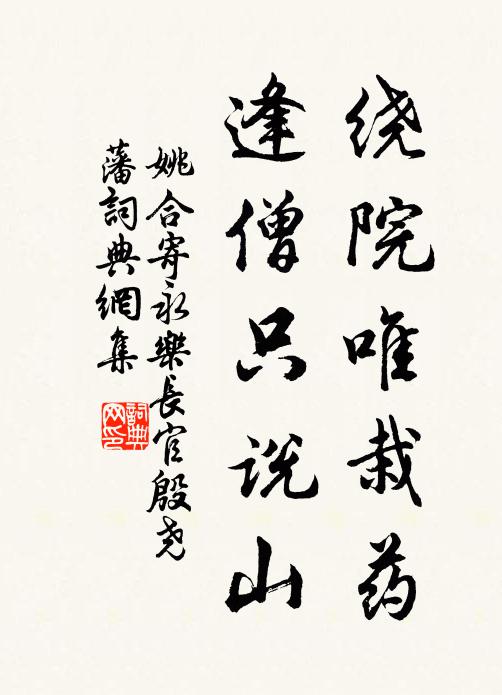 绕院唯栽药
逢僧只说山
姚合寄永樂長官殷尧
藩詞典網集
詞典网印